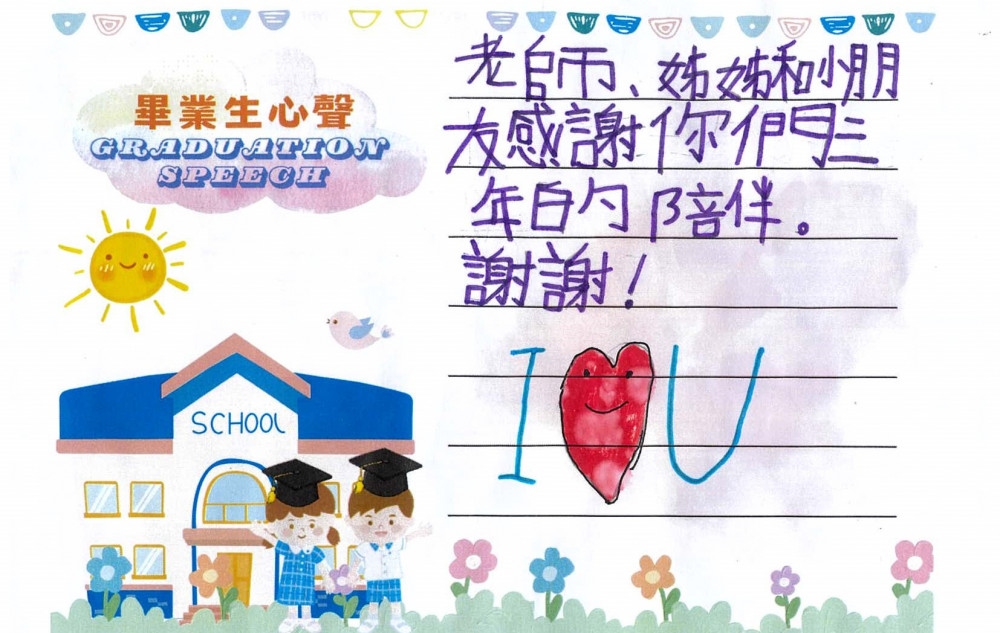 畢業生心聲
GRADUATION
SPEECH
SCHOOL
老師、姊姊和小朋
友感謝你們三
年的陪伴。
謝謝！
I ♥ U